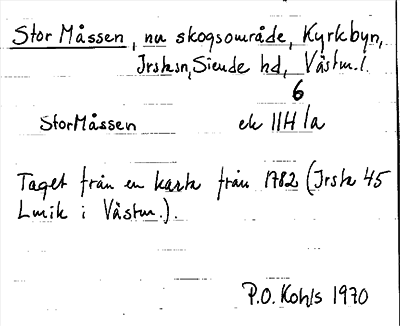 Stor Måssen, nu skogsområde, Kyrkbyn,
Irsta sn, Siende hd, Västm.l.
6
StorMåssen ek 11H 1a
Taget från en karta från 1782 (Irsta 45
Lmik i Västm.).
P.O. Kohls 1970